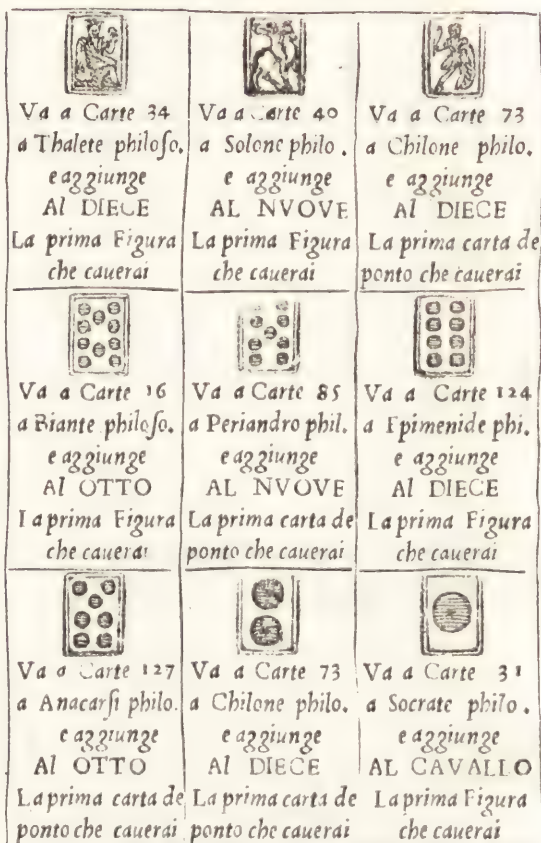 Va a Carte 34
a Thalete philoso.
e aggiunge
Al DIECE
La prima Figura
che cauerai
Va a Carte 40
a Solone philo .
e aggiunge
AL NVOVE
La prima Figura
che cauerai
Va a Carte 73
a Chilone philo.
e aggiunge
Al DIECE
La prima carta de
ponto che cauerai
Va a Carte 16
a Biante philoso.
e aggiunge
Al OTTO
La prima Figura
che cauerai
Va a Carte 85
a Periandro phil.
e aggiunge
AL NVOVE
La prima carta de
ponto che cauerai
Va a Carte 124
a Epimenide phi.
e aggiunge
Al DIECE
La prima Figura
che cauerai
Va a Carte 127
a Anacarsi philo.
e aggiunge
Al OTTO
La prima carta de
ponto che cauerai
Va a Carte 73
a Chilone philo.
e aggiunge
Al DIECE
La prima carta de
ponto che cauerai
Va a Carte 31
a Socrate philo .
e aggiunge
AL CAVALLO
La prima Figura
che cauerai